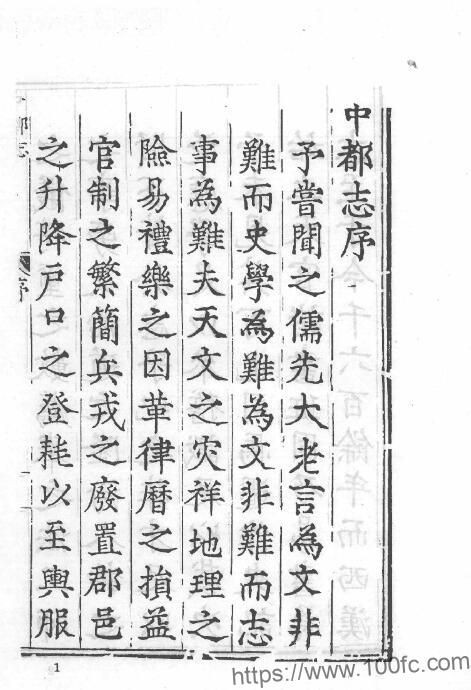 中都志序
予嘗聞之儒先大老言為文非
難而史學為難為文非難而志
事為難夫天文之灾祥地理之
險易禮樂之因革律曆之損益
官制之繁簡兵戎之廢置郡邑
之升降戶口之登耗以至輿服
序
1
https://www.100fc.com